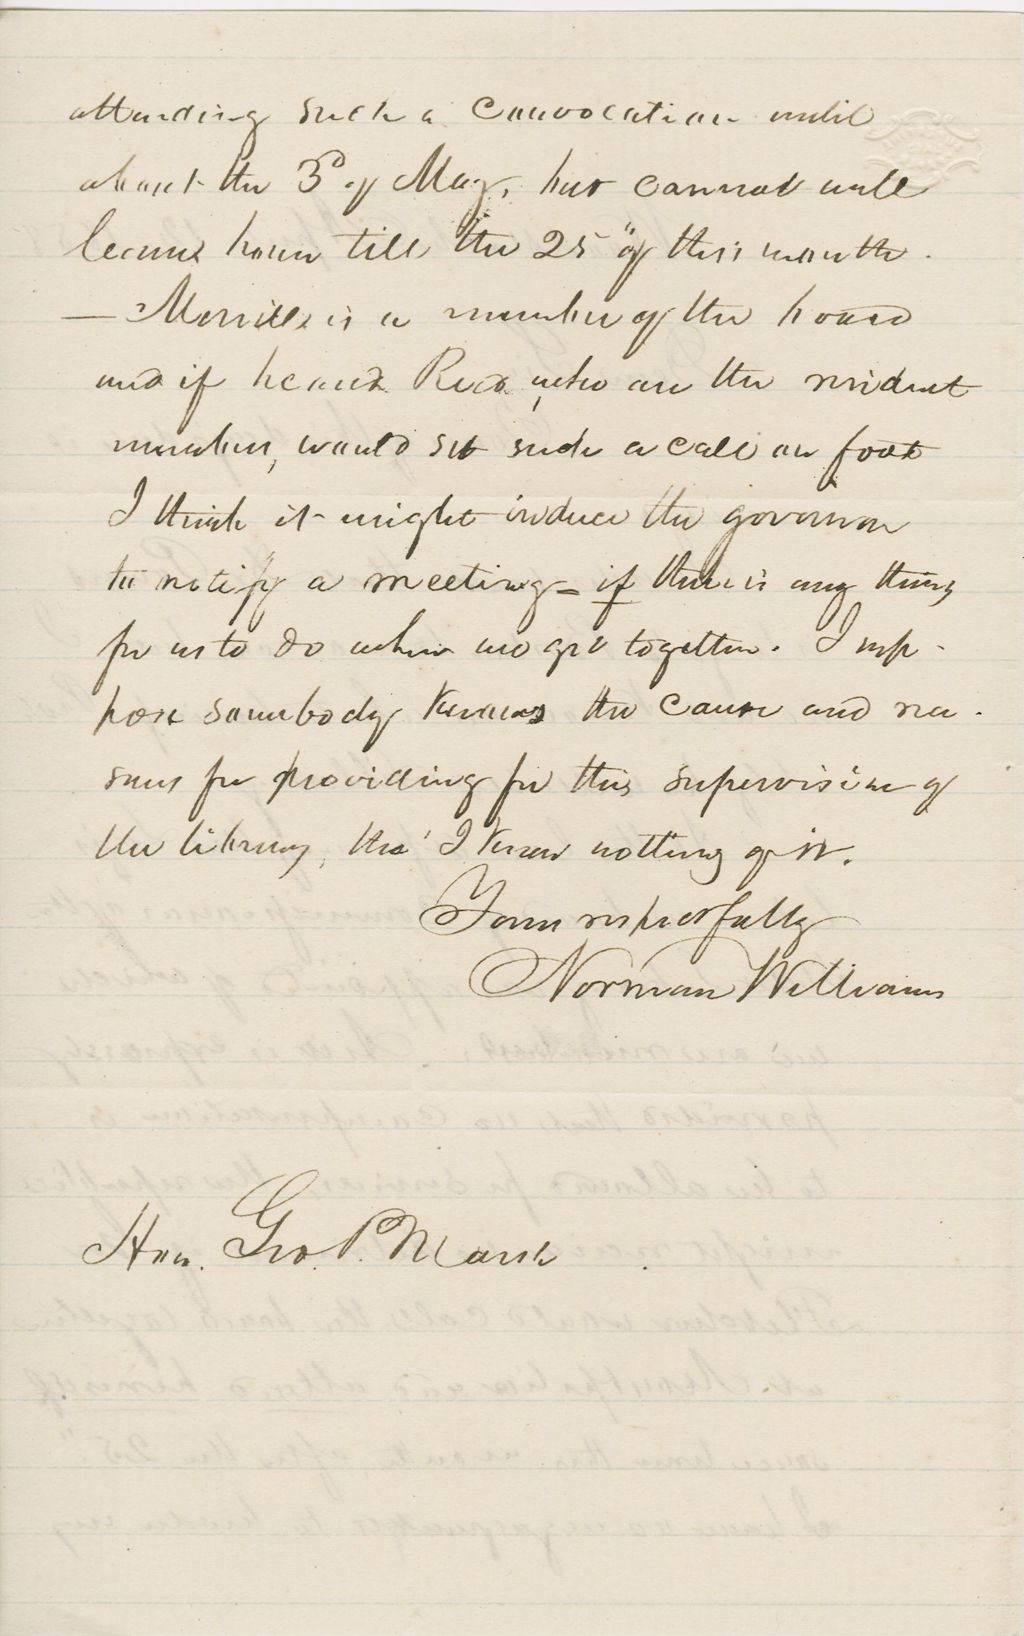 attending such a convocation until
about the 3d of May, but cannot well
leave home till the 25" of this month.
— Merrill is a member of the board
and if he and Reed, who are the resident
members, would set such a call on foot
I think it might induce the governor
to notify a meeting – if there is any thing
for us to do when we get together. I sup-
pose somebody knows the cause and rea-
sons for providing for this supervision of
the library, tho' I know nothing of it.
Yours respectfully
Norman Williams
Hon. Geo. P. Marsh